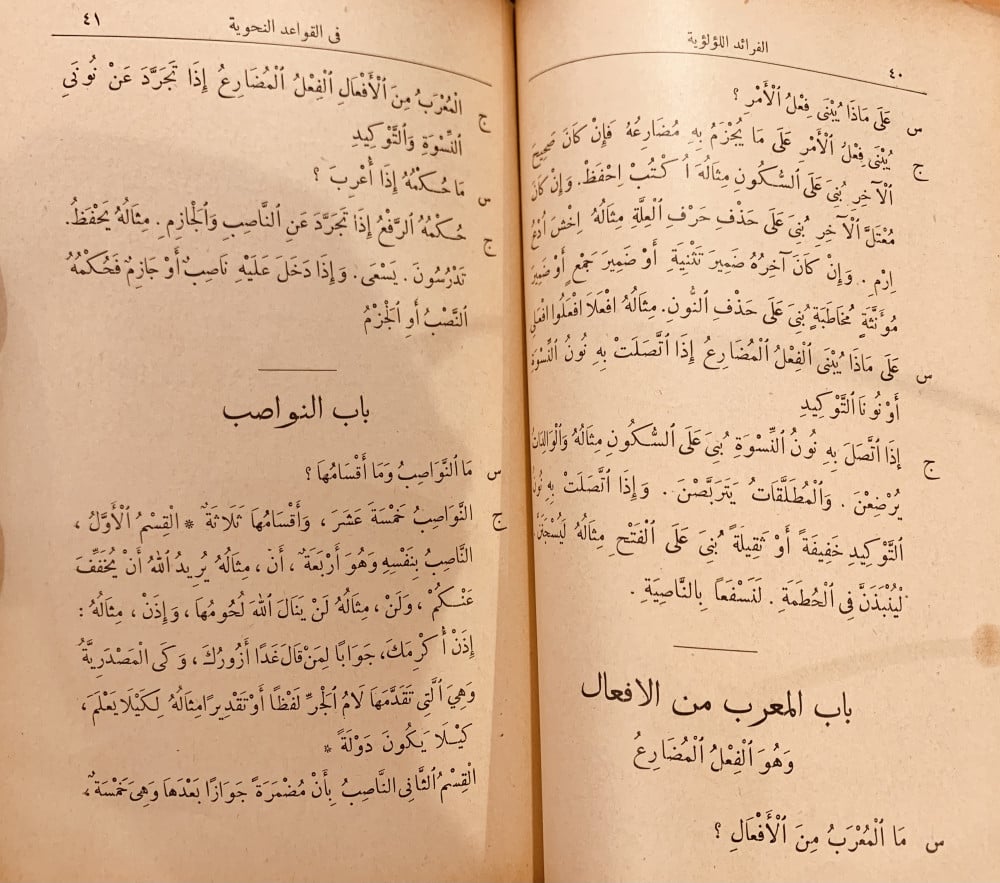 الفرائد اللؤلؤية
٤٠
س عَلَى مَاذَا يُبْنَى فِعْلُ ٱلْأَمْرِ ؟
ج يُبْنَى فِعْلُ ٱلْأَمْرِ عَلَى مَا يُجْزَمُ بِهِ مُضَارِعُهُ فَإِنْ كَانَ صَحِيحَ
ٱلْآخِرِ بُنِيَ عَلَى ٱلسُّكُونِ مِثَالُهُ اُكْتُبْ اِحْفَظْ. وَإِنْ كَانَ
مُعْتَلَّ ٱلْآخِرِ بُنِيَ عَلَى حَذْفِ حَرْفِ ٱلْعِلَّةِ مِثَالُهُ اِخْشَ اُدْعُ
اِرْمِ. وَإِنْ كَانَ آخِرُهُ ضَمِيرَ تَثْنِيَةٍ أَوْ ضَمِيرَ جَمْعٍ أَوْ ضَمِيرَ
مُؤَنَّثَةٍ مُخَاطَبَةٍ بُنِيَ عَلَى حَذْفِ ٱلنُّونِ. مِثَالُهُ اِفْعَلَا اِفْعَلُوا
س عَلَى مَاذَا يُبْنَى ٱلْفِعْلُ ٱلْمُضَارِعُ إِذَا ٱتَّصَلَتْ بِهِ نُونُ ٱلنِّسْوَةِ
أَوْ نُونَا ٱلتَّوْكِيدِ
ج إِذَا ٱتَّصَلَ بِهِ نُونُ ٱلنِّسْوَةِ بُنِيَ عَلَى ٱلسُّكُونِ مِثَالُهُ وَٱلْوَالِدَاتُ
يُرْضِعْنَ. وَٱلْمُطَلَّقَاتُ يَتَرَبَّصْنَ. وَإِذَا ٱتَّصَلَتْ بِهِ نُونُ
ٱلتَّوْكِيدِ خَفِيفَةً أَوْ ثَقِيلَةً بُنِيَ عَلَى ٱلْفَتْحِ مِثَالُهُ لَيُسْجَنَنَّ.
لَيُنْبَذَنَّ فِي ٱلْحُطَمَةِ. لَنَسْفَعًا بِالنَّاصِيَةِ.
باب المعرب من الافعال
وَهُوَ ٱلْفِعْلُ ٱلْمُضَارِعُ
س مَا ٱلْمُعْرَبُ مِنَ ٱلْأَفْعَالِ ؟
فى القواعد النحوية
٤١
ج ٱلْمُعْرَبُ مِنَ ٱلْأَفْعَالِ ٱلْفِعْلُ ٱلْمُضَارِعُ إِذَا تَجَرَّدَ عَنْ نُونَىِ
ٱلنِّسْوَةِ وَٱلتَّوْكِيدِ
س مَا حُكْمُهُ إِذَا أُعْرِبَ ؟
ج حُكْمُهُ ٱلرَّفْعُ إِذَا تَجَرَّدَ عَنِ ٱلنَّاصِبِ وَٱلْجَازِمِ. مِثَالُهُ يَحْفَظُ.
تَدْرُسُونَ. يَسْعَى. وَإِذَا دَخَلَ عَلَيْهِ نَاصِبٌ أَوْ جَازِمٌ فَحُكْمُهُ
ٱلنَّصْبُ أَوِ ٱلْجَزْمُ
باب النواصب
س مَا ٱلنَّوَاصِبُ وَمَا أَقْسَامُهَا ؟
ج ٱلنَّوَاصِبُ خَمْسَةَ عَشَرَ، وَأَقْسَامُهَا ثَلَاثَةٌ * ٱلْقِسْمُ ٱلْأَوَّلُ،
ٱلنَّاصِبُ بِنَفْسِهِ وَهُوَ أَرْبَعَةٌ، أَنْ، مِثَالُهُ يُرِيدُ ٱللهُ أَنْ يُخَفِّفَ
عَنْكُمْ، وَلَنْ، مِثَالُهُ لَنْ يَنَالَ ٱللهَ لُحُومُهَا، وَإِذَنْ، مِثَالُهُ :
إِذَنْ أُكْرِمَكَ، جَوَابًا لِمَنْ قَالَ غَدًا أَزُورُكَ، وَكَى ٱلْمَصْدَرِيَّةُ
وَهِيَ ٱلَّتِى تَقَدَّمَهَا لَامُ ٱلْجَرِّ لَفْظًا أَوْ تَقْدِيرًا مِثَالُهُ لِكَيْلَا يَعْلَمَ،
كَيْلَا يَكُونَ دَوْلَةً *
ٱلْقِسْمُ ٱلثَّانِى ٱلنَّاصِبُ بِأَنْ مُضْمَرَةً جَوَازًا بَعْدَهَا وَهِيَ خَمْسَةٌ،